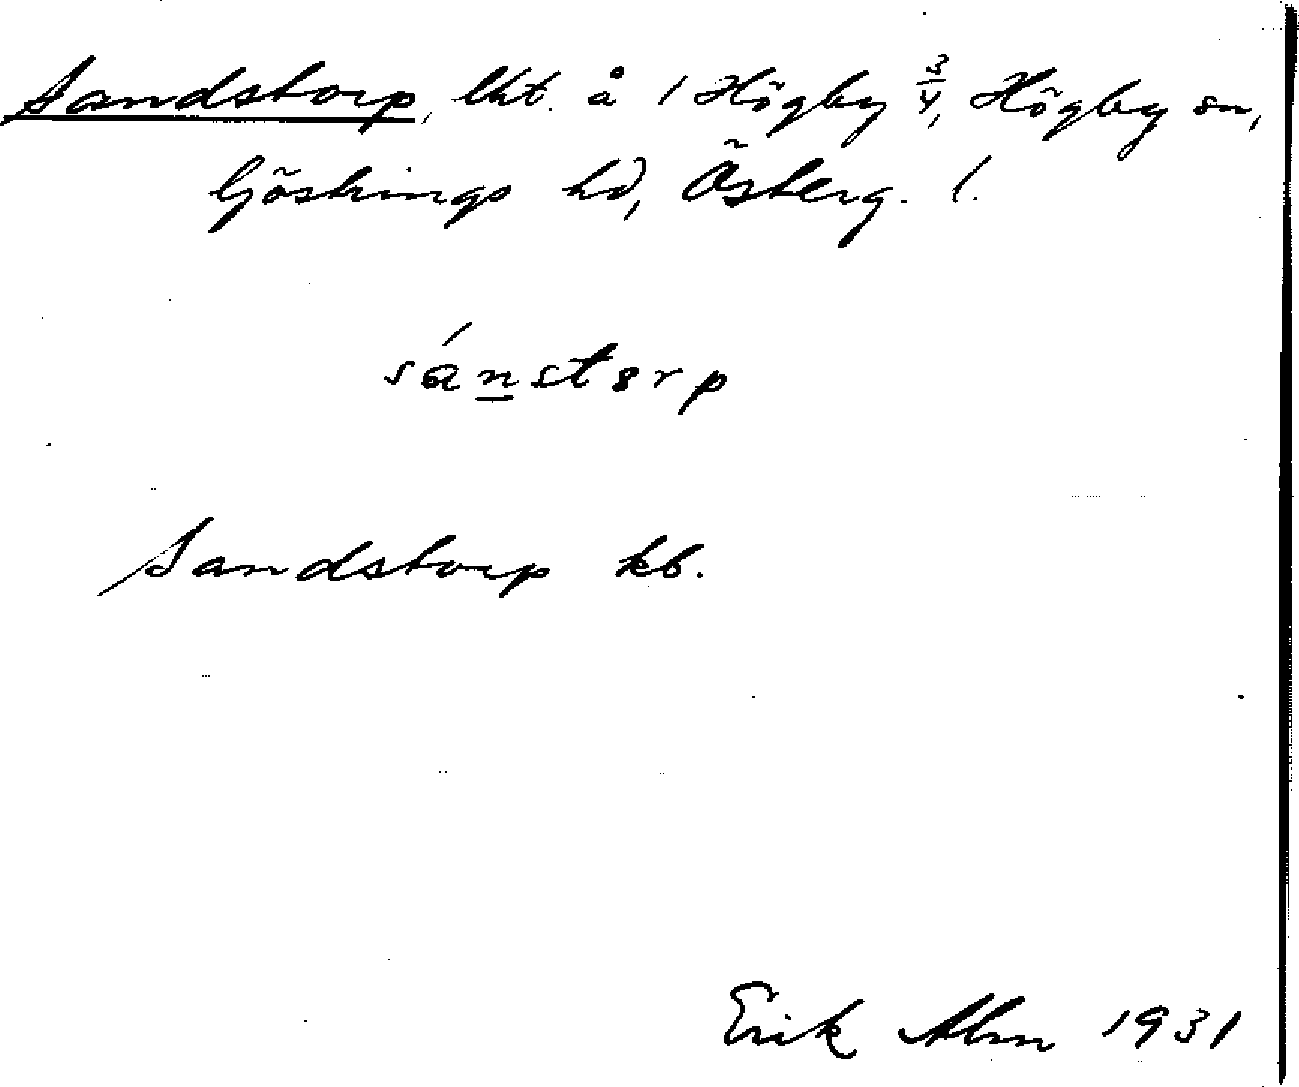 Sandstorp, lht. å 1 Högby 3/4, Högby sn,
Göstrings hd, Österg. l.
sánstørp
Sandstorp kb.
Erik Alm 1931